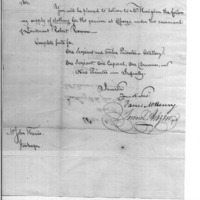 Sir
You will be pleased to deliver to Mr. Harrington the following
supply of clothing for the garrison at Oswego under the command
of Lieutenant Robert
Complete suits for
One Serjeant and twelve Privates Artillery
One Serjeant, One Corporal, One Drummer, and
Nine Privates
Infantry
I am Sir
James McHenry
Mr. John Harris